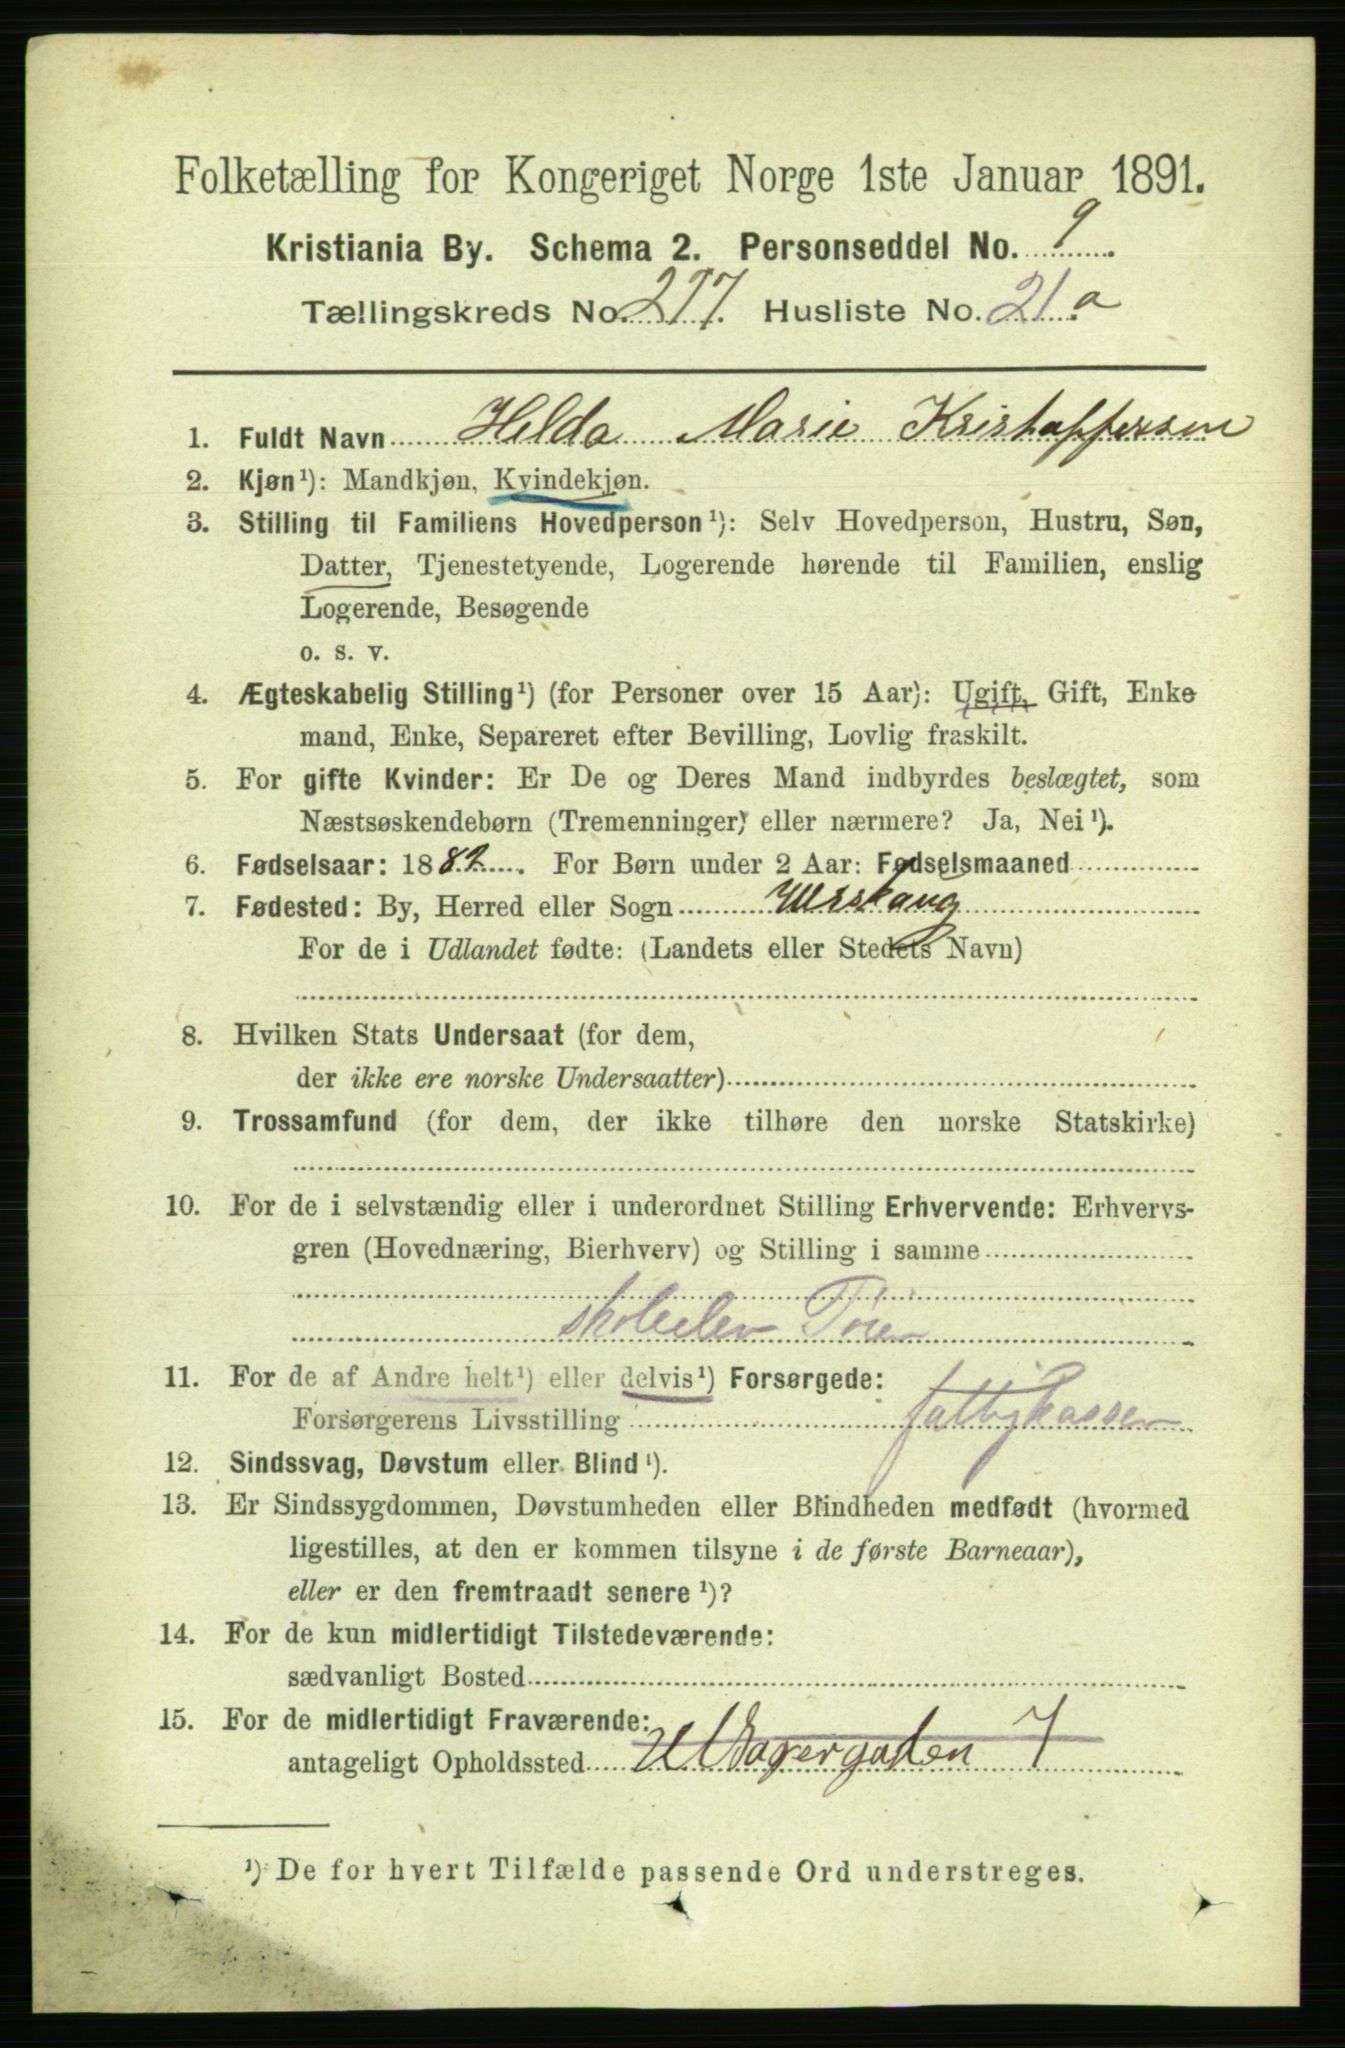 Folketælling for Kongeriget Norge 1ste Januar 1891.
Kristiania By. Schema 2. Personseddel No. 9
Tællingskreds No. 277. Husliste No. 21a
1. Fuldt Navn Helda Marie Kristoffersen
2. Kjøn¹): Mandkjøn, Kvindekjøn.
3. Stilling til Familiens Hovedperson¹): Selv Hovedperson, Hustru, Søn,
Datter, Tjenestetyende, Logerende hørende til Familien, enslig
Logerende, Besøgende
o. s. v.
4. Ægteskabelig Stilling¹) (for Personer over 15 Aar): Ugift, Gift, Enke
mand, Enke, Separeret efter Bevilling, Lovlig fraskilt.
5. For gifte Kvinder: Er De og Deres Mand indbyrdes beslægtet, som
Næstsøskendebørn (Tremenninger) eller nærmere? Ja, Nei¹).
6. Fødselsaar: 1882. For Børn under 2 Aar: Fødselsmaaned
7. Fødested: By, Herred eller Sogn Urskaug
For de i Udlandet fødte: (Landets eller Stedets Navn)
8. Hvilken Stats Undersaat (for dem,
der ikke ere norske Undersaatter)
9. Trossamfund (for dem, der ikke tilhøre den norske Statskirke)
10. For de i selvstændig eller i underordnet Stilling Erhvervende: Erhvervs-
gren (Hovednæring, Bierhverv) og Stilling i samme
skoleelev Tøien
11. For de af Andre helt¹) eller delvis¹) Forsørgede:
Forsørgerens Livsstilling fattigkassen
12. Sindssvag, Døvstum eller Blind¹).
13. Er Sindssygdommen, Døvstumheden eller Blindheden medfødt (hvormed
ligestilles, at den er kommen tilsyne i de første Barneaar),
eller er den fremtraadt senere¹)?
14. For de kun midlertidigt Tilstedeværende:
sædvanligt Bosted
15. For de midlertidigt Fraværende:
antageligt Opholdssted 7
¹) De for hvert Tilfælde passende Ord understreges.